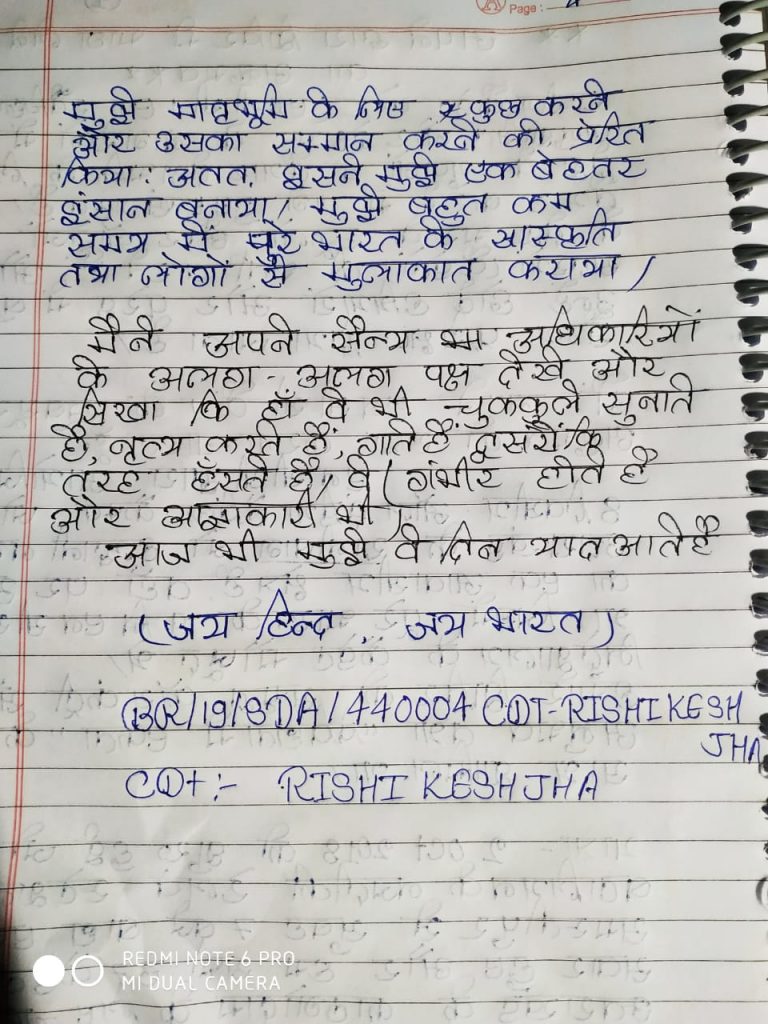 Page :
मुझे मातृभूमि के लिए कुछ करने
और उसका सम्मान करने की प्रेरित
किया. अतत. इसने मुझे एक बेहतर
इंसान बनाया। मुझे बहुत कम
समय में पुरे भारत के सास्कृति
तथा लोगों से मुलाकात कराया।
मैने अपने सैन्य अधिकारियों
के अलग-अलग पक्ष देखे और
सिखा कि हाँ वे भी चुककुले सुनाते
है, नृत्य करते हैं, गाते हैं दुसरों कि
तरह हँसते है, वे गंभीर होते है
और आज्ञाकारी भी।
आज भी मुझे वे दिन याद आते है
(जय हिन्द, जय भारत)
BR/19/SDA/440004 CDT-RISHIKESH
JHA
CDT:- RISHI KESH JHA
REDMI NOTE 6 PRO
MI DUAL CAMERA